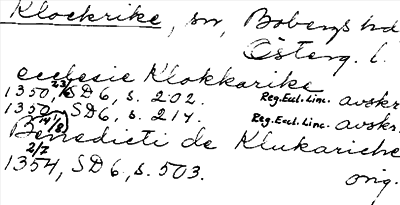 Klockrike, sn, Bobergs hd
Österg. l.
ecclesie Klokkarike
1350 23/6, SD6, s. 202. Reg. Eccl. Linc. avskr.
1350 14/8, SD6, s. 214. Reg. Eccl. Linc. avskr.
Benedicti de Klukariche
1354 2/7, SD6, s. 503. orig.